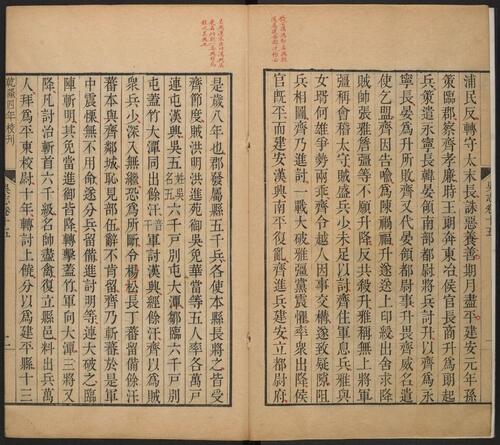 浦民反轉守太末長誅惡養善期月盡平建安元年孫
策臨郡察齊孝廉時王朗奔東冶侯官長商升爲朗起
兵策遣永寧長韓晏領南部都尉將兵討升以齊爲永
寧長晏爲升所敗齊又代晏領都尉事升畏齊威名遣
使乞盟齊因告喻爲陳禍福升遂送上印綬出舍求降
賊帥張雅詹彊等不願升降反共殺升雅稱無上將軍
彊稱會稽太守賊盛兵少未足以討齊住軍息兵雅與
女壻何雄爭勢兩乖齊令越人因事交構遂致疑隙阻
兵相圖齊乃進討一戰大破雅彊黨震懼率衆出降侯
官旣平而建安漢興南平復亂齊進兵建安立都尉府
吳志卷十五
是歲八年也郡發屬縣五千兵各使本縣長將之皆受
齊節度賊洪明洪進苑御吳免華當等五人率各萬戶
連屯漢興吳五姓吳名五六千戶別屯大潭鄒臨六千戶別
屯蓋竹大潭同出餘汗音干軍討漢興經餘汗齊以爲賊
衆兵少深入無繼恐爲所斷令楊松長丁蕃留備餘汗
蕃本與齊鄰城恥見部伍辭不肯留齊乃斬蕃於是軍
中震慄無不用命遂分兵留備進討明等連大破之臨
陣斬明其免當進御皆降轉擊蓋竹軍向大潭三將又
降凡討治斬首六千級名帥盡禽復立縣邑料出兵萬
人拜爲平東校尉十年轉討上饒分以爲建平縣十三
乾隆四年校刊